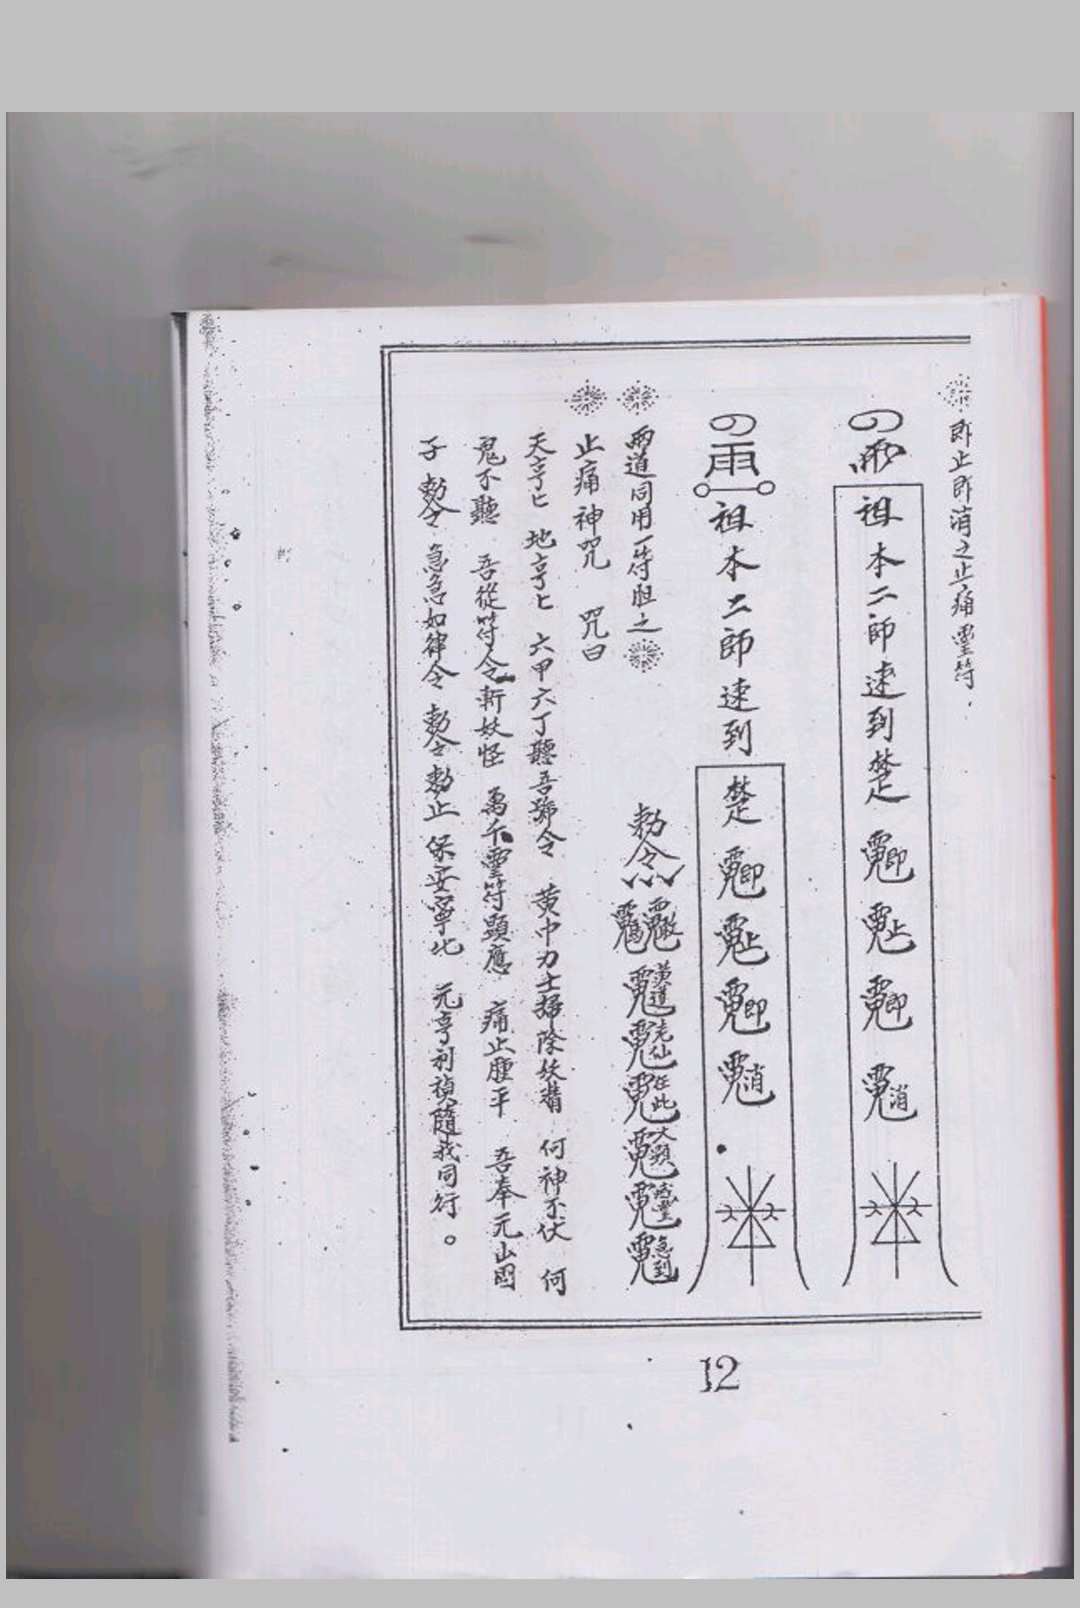 即止即消之止痛靈符
祖本二師速到楚
祖本二師速到
楚
兩道同用一符胆之
勅令
黃道
老仙
在此
大顯
急到
止痛神咒 咒曰
天亨匕 地亨匕 六甲六丁聽吾號令 黄巾力士掃除妖精 何神不伏 何
鬼不聽 吾從符令斬妖怪 萬千靈符顕應 痛止腫平 吾奉元山國
子 勅令 急急如律令 勅令勅止 保安寧 元亨利禎隨我同行。
12